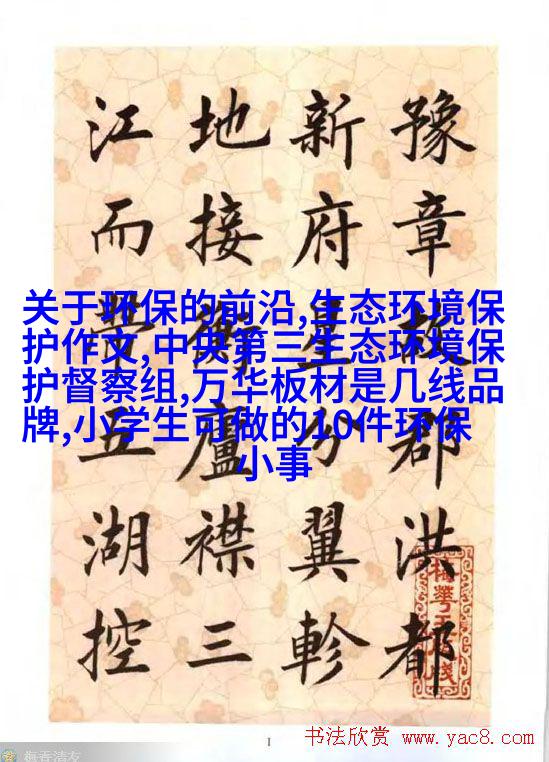 豫章故郡洪都
新府星分翼軫
地接衡廬襟三
江而帶五湖控
关于环保的前沿,生态环境保
护作文,中央第三生态环境保
护督察组,万华板材是几线品
牌,小学生可做的10件环保
小事
1
书法欣赏 www.yac8.com